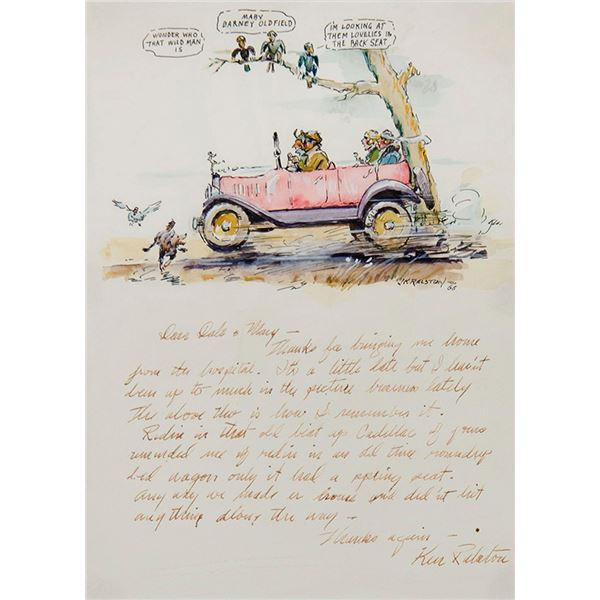 WONDER WHO
THAT WILD MAN
IS
MABY
BARNEY OLDFIELD
I'M LOOKING AT
THEM LOVELIES IN
THE BACK SEAT
J.K. RALSTON
65
Dear Dale & Mary —
Thanks for bringing me home
from the hospital. Its a little late but I haven't
been up to much in the picture business lately
The above tho is how I remember it.
Ridin in that old beat up Cadillac of yours
reminded me of ridin in an old time roundup
bed wagon only it had a spring seat.
Anyway we made er home and did'nt hit
anything along the way —
Thanks again —
Ken Ralston